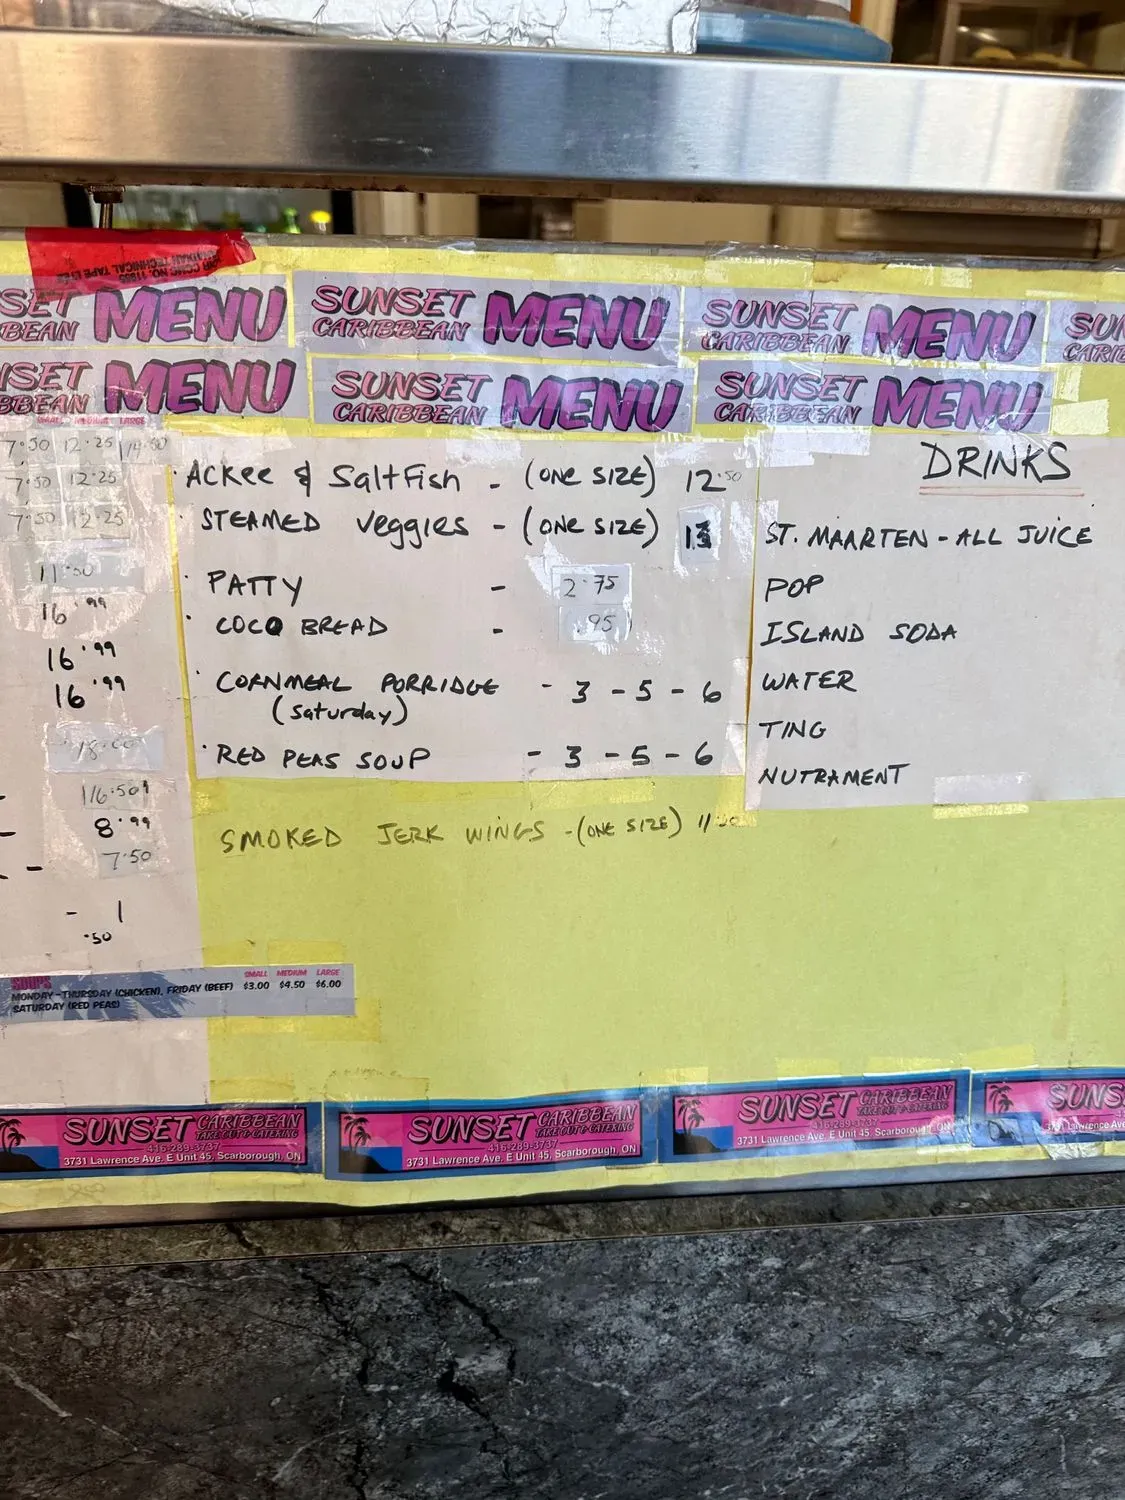 SUNSET CARIBBEAN MENU
SUNSET CARIBBEAN MENU
SUNSET CARIBBEAN MENU
SUNSET CARIBBEAN MENU
SUNSET CARIBBEAN MENU
SMALL MEDIUM LARGE
7.50 12.25
7.50 12.25
7.50 12.25
11.50
16.99
16.99
16.99
16.50
8.99
7.50
- 1
.50
ACKEE & SALTFISH - (ONE SIZE) 12.50
STEAMED VEGGIES - (ONE SIZE) 13
PATTY - 2.75
COCO BREAD - .95
CORNMEAL PORRIDGE - 3 - 5 - 6
(SATURDAY)
RED PEAS SOUP - 3 - 5 - 6
SMOKED JERK WINGS - (ONE SIZE)
DRINKS
ST. MAARTEN - ALL JUICE
POP
ISLAND SODA
WATER
TING
NUTRAMENT
SOUPS SMALL MEDIUM LARGE
MONDAY - THURSDAY (CHICKEN), FRIDAY (BEEF) $3.00 $4.50 $6.00
SATURDAY (RED PEAS)
SUNSET CARIBBEAN
TAKE OUT & CATERING
416-289-3737
3731 Lawrence Ave. E Unit 45, Scarborough, ON
SUNSET CARIBBEAN
TAKE OUT & CATERING
416-289-3737
3731 Lawrence Ave. E Unit 45, Scarborough, ON
SUNSET CARIBBEAN
TAKE OUT & CATERING
416-289-3737
3731 Lawrence Ave. E Unit 45, Scarborough, ON
SUNSET
3731 Lawrence Ave